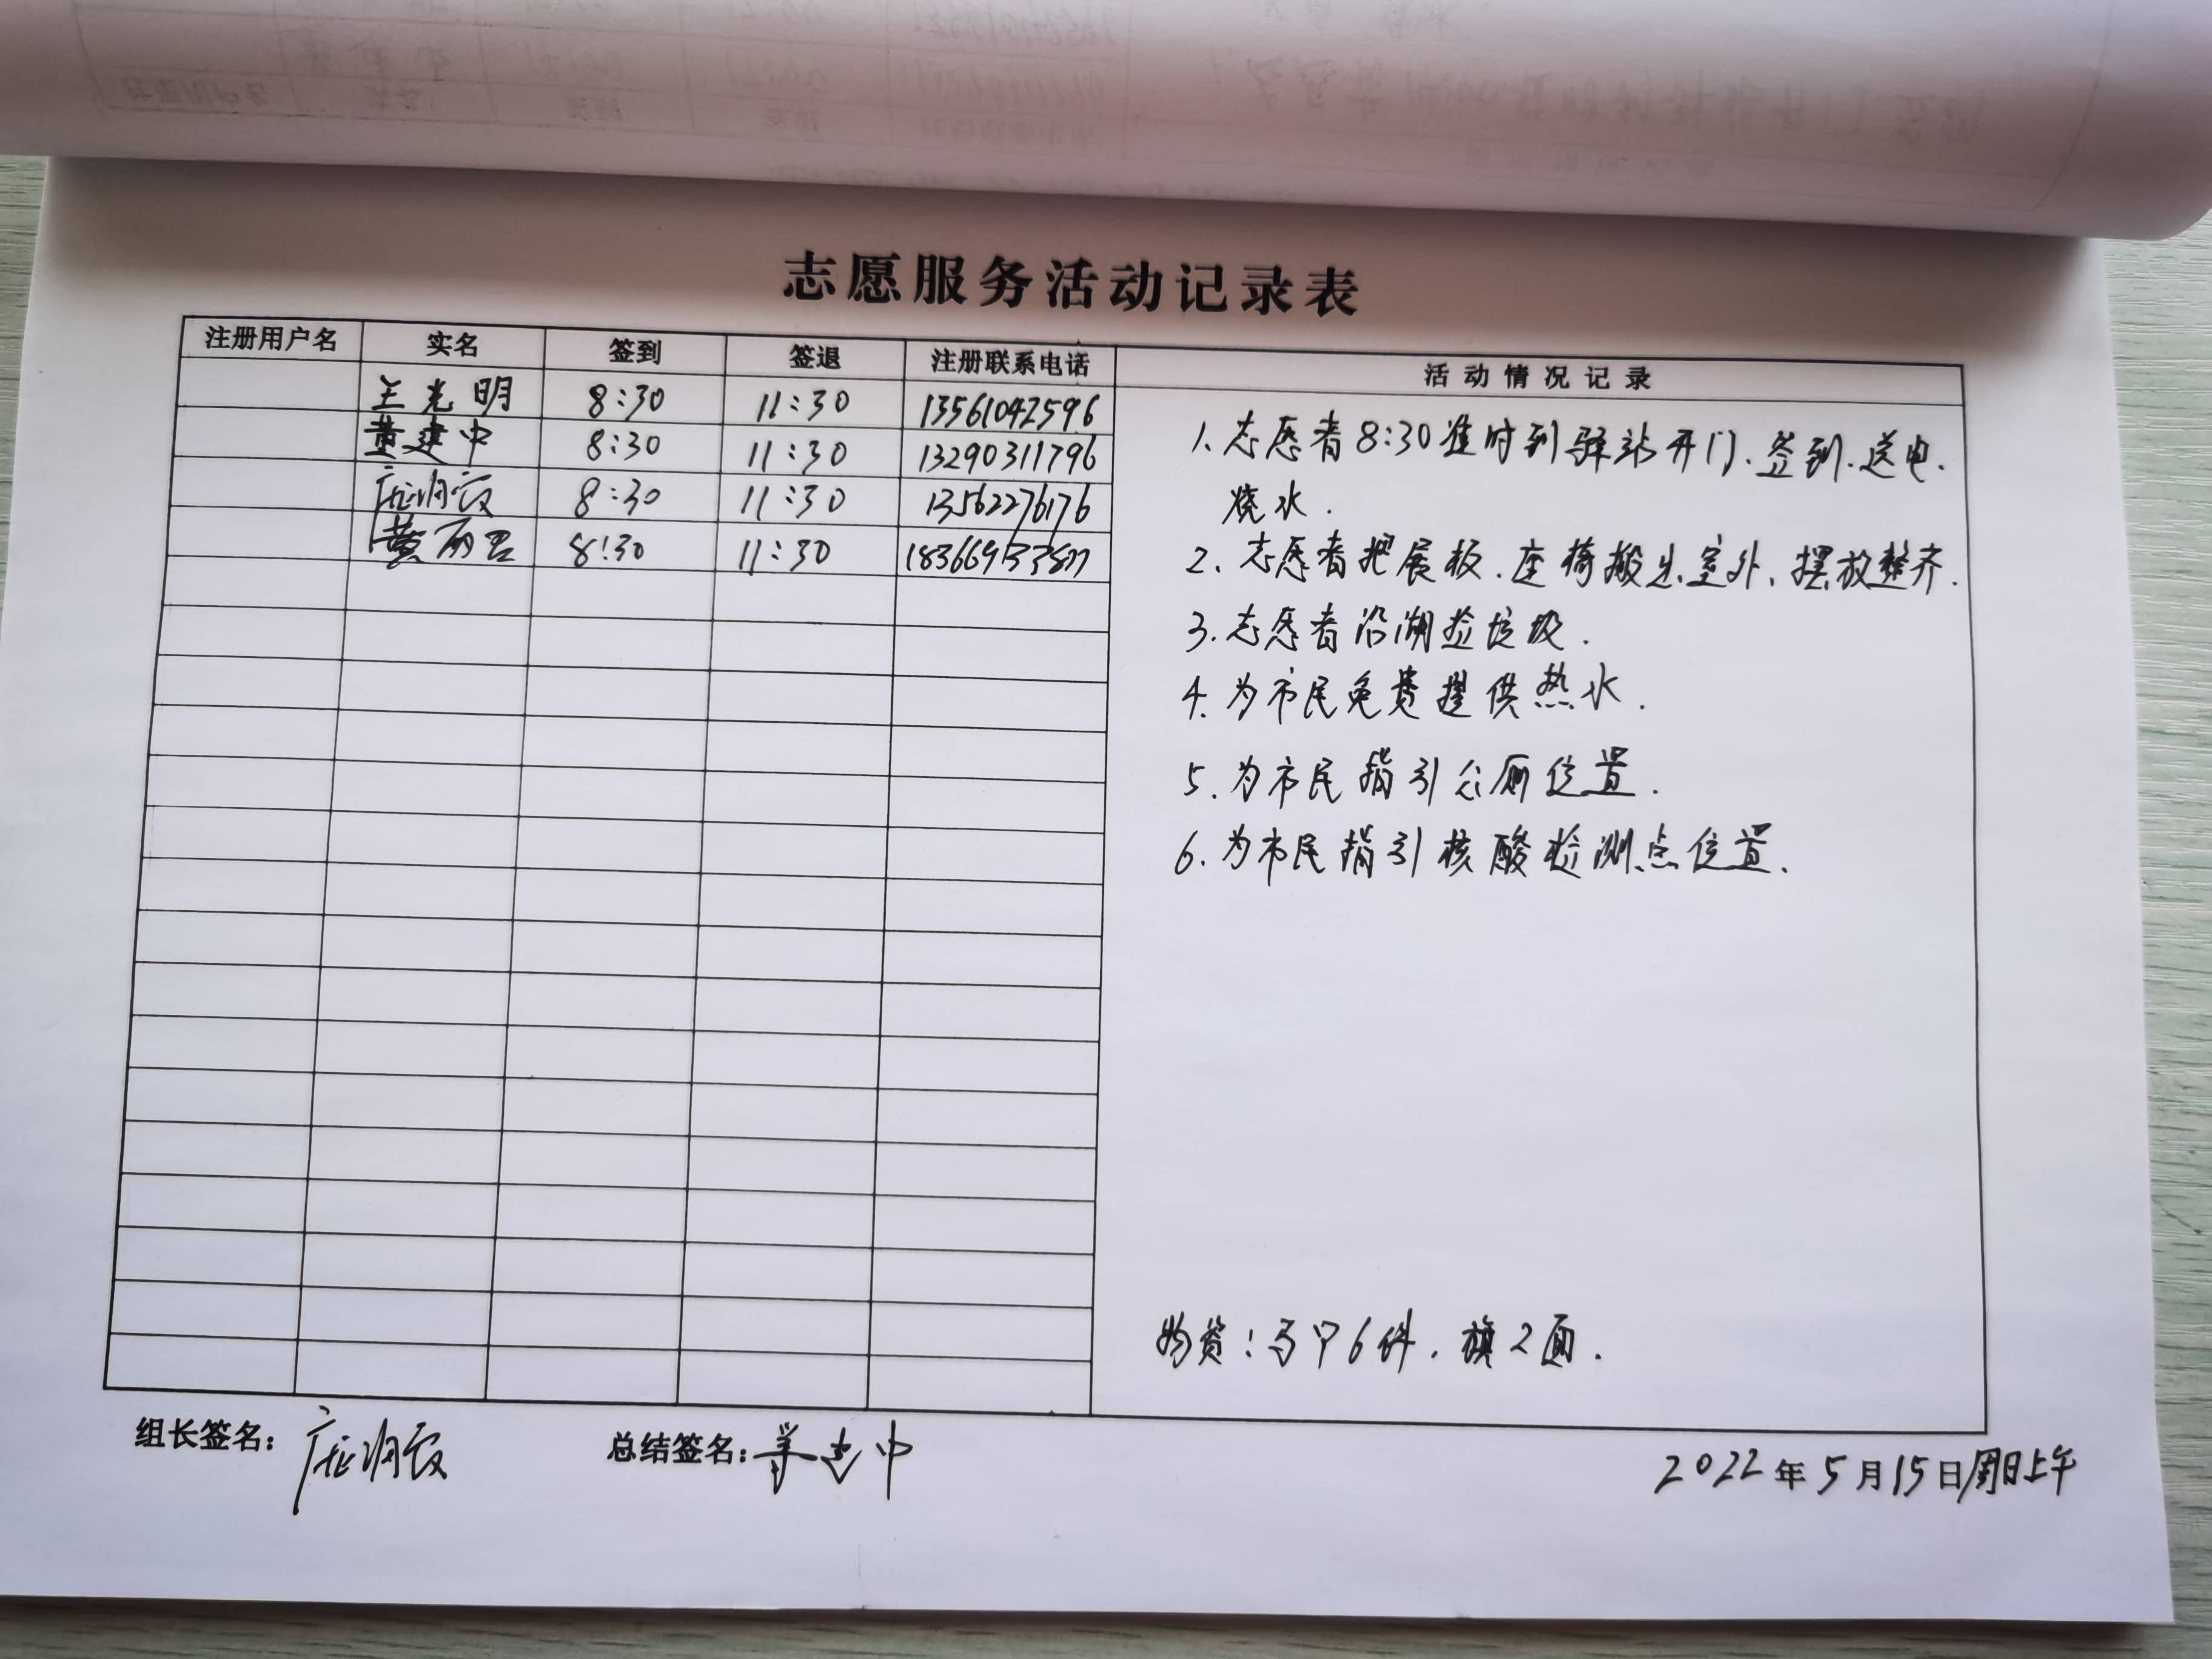 志愿服务活动记录表
注册用户名 实名 签到 签退 注册联系电话 活动情况记录
王光明 8:30 11:30 13561042596
黄建中 8:30 11:30 13290311796
8:30 11:30 13562276176
黄丽君 8:30 11:30
1.志愿者8:30准时到驿站开门、签到、送电、
烧水.
2、志愿者把展板、座椅搬出室外、摆放整齐.
3.志愿者沿湖捡垃圾.
4.为市民免费提供热水.
5.为市民指引公厕位置.
6.为市民指引核酸检测点位置.
物资:马甲6件.旗2面.
组长签名: 总结签名: 2022年5月15日周日上午